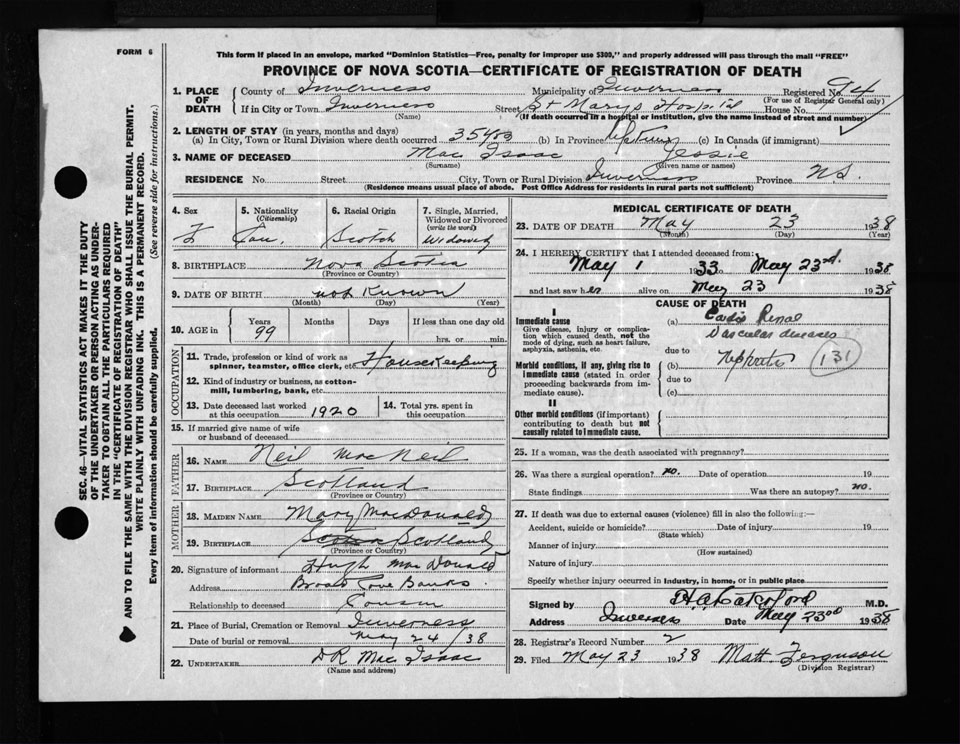 FORM 6
This form if placed in an envelope, marked "Dominion Statistics—Free, penalty for improper use $300," and properly addressed will pass through the mail "FREE"
PROVINCE OF NOVA SCOTIA—CERTIFICATE OF REGISTRATION OF DEATH
1. PLACE OF DEATH
County of Inverness Municipality of Inverness Registered No. 94
(For use of Registrar General only)
If in City or Town Inverness Street St Marys Hospital House No.
(Name) (If death occurred in a hospital or institution, give the name instead of street and number)
2. LENGTH OF STAY (in years, months and days)
(a) In City, Town or Rural Division where death occurred 35 yrs (b) In Province (c) In Canada (if immigrant)
3. NAME OF DECEASED Mac Isaac Jessie
(Surname) (Given name or names)
RESIDENCE No. Street City, Town or Rural Division Inverness Province N.S.
(Residence means usual place of abode. Post Office Address for residents in rural parts not sufficient)
4. Sex F
5. Nationality (Citizenship) Can.
6. Racial Origin Scotch
7. Single, Married, Widowed or Divorced (write the word) Widowed
8. BIRTHPLACE Nova Scotia
(Province or Country)
9. DATE OF BIRTH not Known
(Month) (Day) (Year)
10. AGE in Years 99 Months Days If less than one day old
hrs. or min.
OCCUPATION
11. Trade, profession or kind of work as spinner, teamster, office clerk, etc. Housekeeping
12. Kind of industry or business, as cotton-mill, lumbering, bank, etc.
13. Date deceased last worked at this occupation 1920
14. Total yrs. spent in this occupation
15. If married give name of wife or husband of deceased
FATHER
16. NAME Neil MacNeil
17. BIRTHPLACE Scotland
(Province or Country)
MOTHER
18. MAIDEN NAME Mary MacDonald
19. BIRTHPLACE Scotland
(Province or Country)
20. Signature of informant Hugh MacDonald
Address Broad Cove Banks
Relationship to deceased Cousin
21. Place of Burial, Cremation or Removal Inverness
Date of burial or removal May 24/38
22. UNDERTAKER D R Mac Isaac
(Name and address)
MEDICAL CERTIFICATE OF DEATH
23. DATE OF DEATH May 23 1938
(Month) (Day) (Year)
24. I HEREBY CERTIFY that I attended deceased from:
May 1 1933 to May 23rd. 1938
and last saw her alive on May 23 1938
CAUSE OF DEATH
I
Immediate cause
Give disease, injury or complication which caused death, not the mode of dying, such as heart failure, asphyxia, asthenia, etc.
(a) Cardio Renal
Vascular diseases
due to
Morbid conditions, if any, giving rise to immediate cause (stated in order proceeding backwards from immediate cause).
(b) 131
due to
(c)
II
Other morbid conditions (if important) contributing to death but not causally related to immediate cause.
25. If a woman, was the death associated with pregnancy?
26. Was there a surgical operation? no. Date of operation 19
State findings Was there an autopsy? no.
27. If death was due to external causes (violence) fill in also the following:—
Accident, suicide or homicide? Date of injury 19
(State which)
Manner of injury
(How sustained)
Nature of injury
Specify whether injury occurred in industry, in home, or in public place
Signed by M.D.
Address Inverness Date May 23rd 1938
28. Registrar's Record Number 2
29. Filed May 23 1938 Matt Ferguson
(Division Registrar)
SEC. 46—VITAL STATISTICS ACT MAKES IT THE DUTY
OF THE UNDERTAKER OR PERSON ACTING AS UNDER-
TAKER TO OBTAIN ALL THE PARTICULARS REQUIRED
IN THE "CERTIFICATE OF REGISTRATION OF DEATH"
AND TO FILE THE SAME WITH THE DIVISION REGISTRAR WHO SHALL ISSUE THE BURIAL PERMIT.
WRITE PLAINLY WITH UNFADING INK. THIS IS A PERMANENT RECORD.
Every item of information should be carefully supplied. (See reverse side for instructions.)